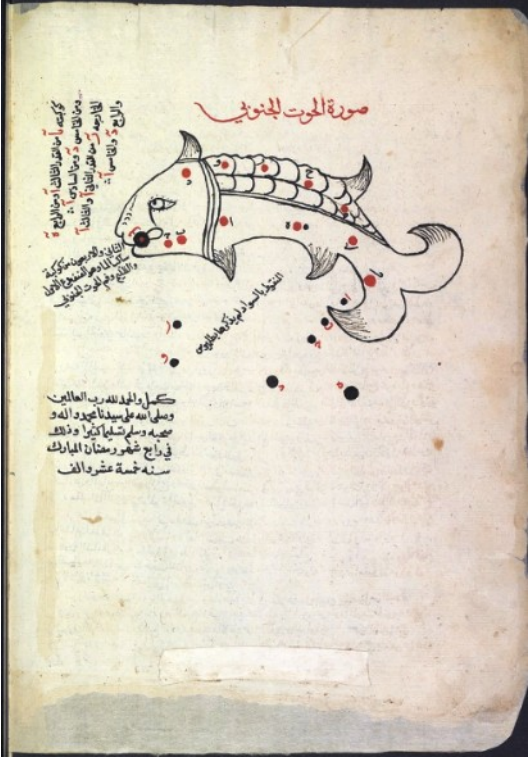 صورة الحوت الجنوبي
كوكبته يا من القدر الثالث ا ومن الرابع ة
ومن الخامس د ومن السادس ا
الخارجه من القدر الثاني والثالث
والرابع والخامس
الثاني والاربعون من كوكبة
ساكب الماء هو الضفدع الاول
والظليم وفم الحوت الجنوبي
النقط بالسواد لم يذكرها بطلميوس
كمل والحمد لله رب العالمين
وصلى الله على سيدنا محمد واله و
صحبه وسلم تسليما كثيرا وذلك
في رابع شهر رمضان المبارك
سنه خمسة عشر والف